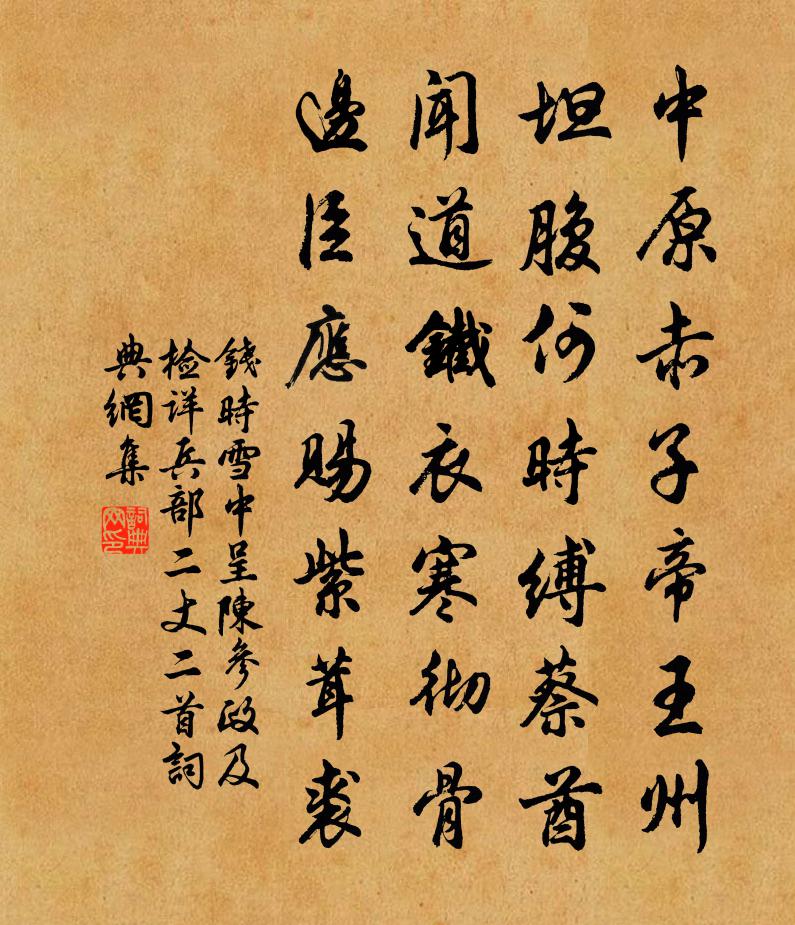 中原赤子帝王州
坦腹何時縛蔡酋
聞道鐵衣寒徹骨
邊臣應賜紫茸裘
錢時雪中呈陳參政及
檢詳兵部二丈二首詞
典網集
詞典
网印